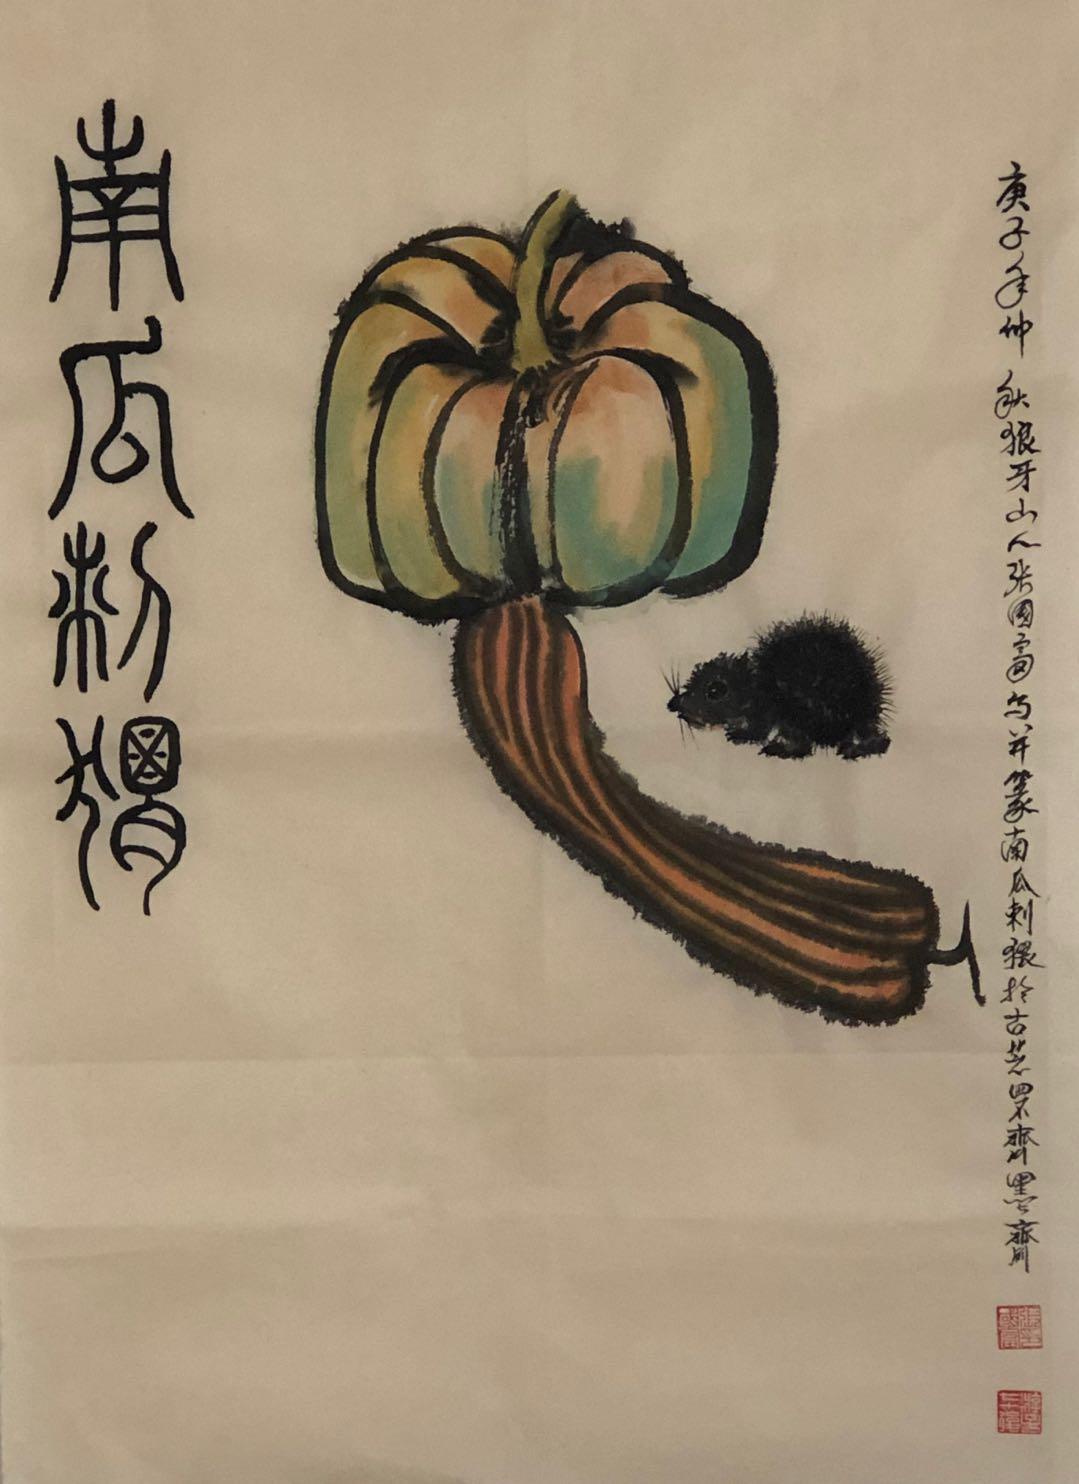 南瓜刺猬
庚子年仲秋狼牙山人张国富写并篆南瓜刺猬於古